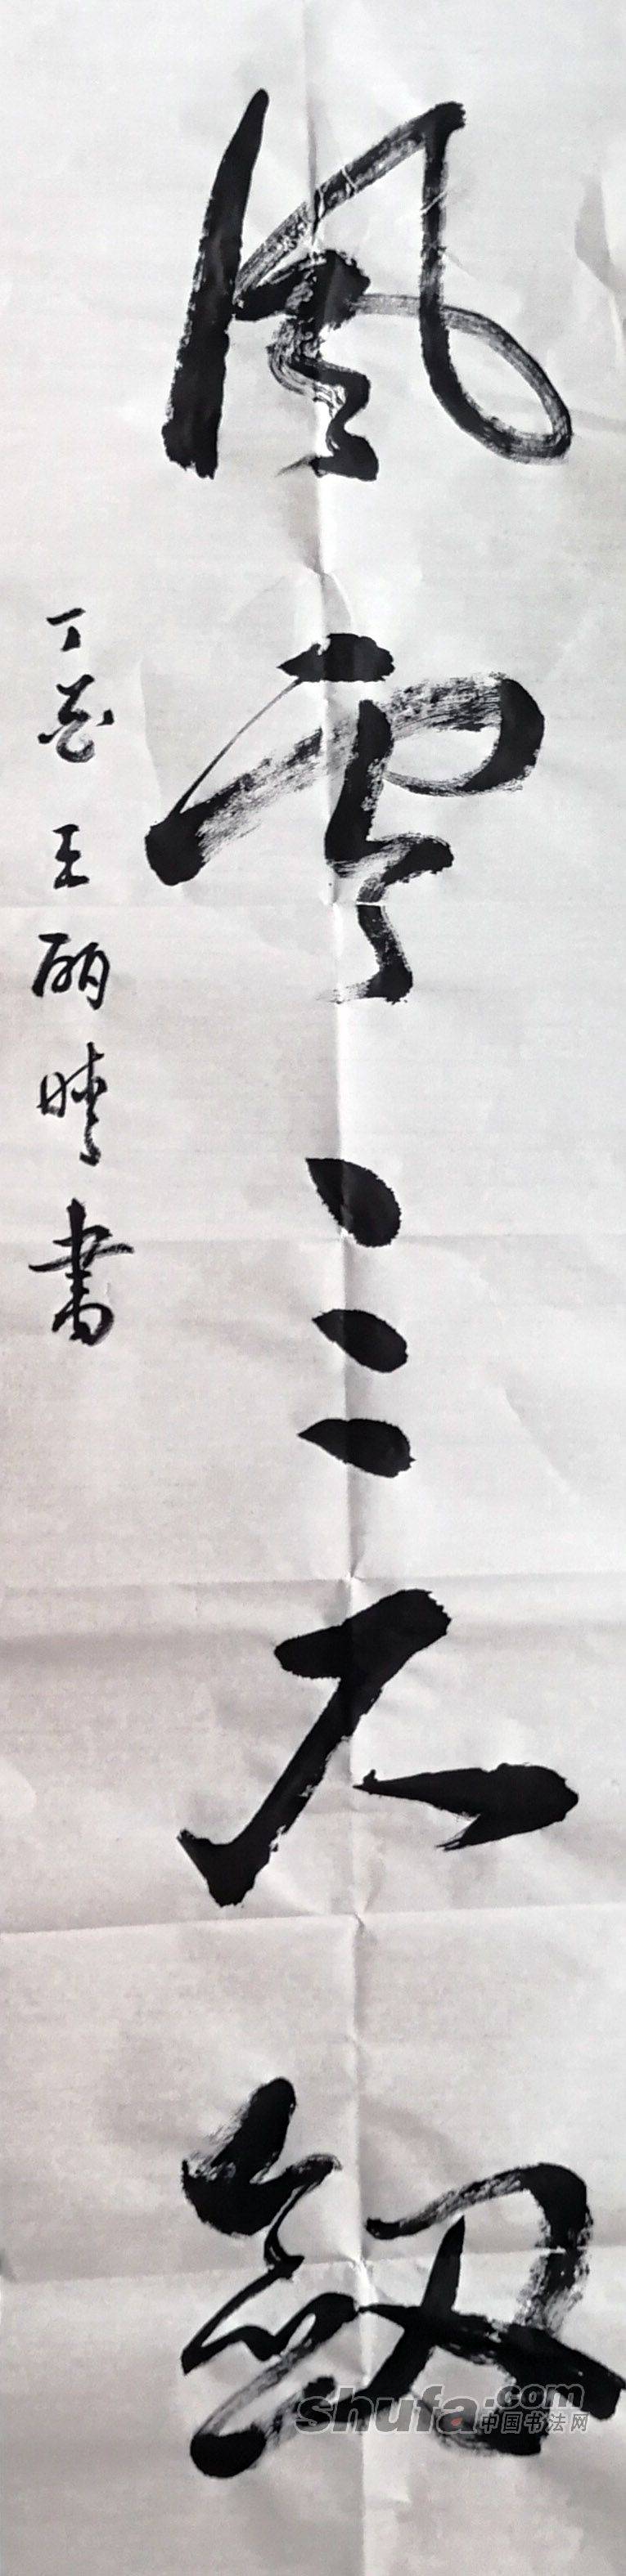 風雲三尺劍
丁酉 王丽晴書
shufa.com
中国书法网